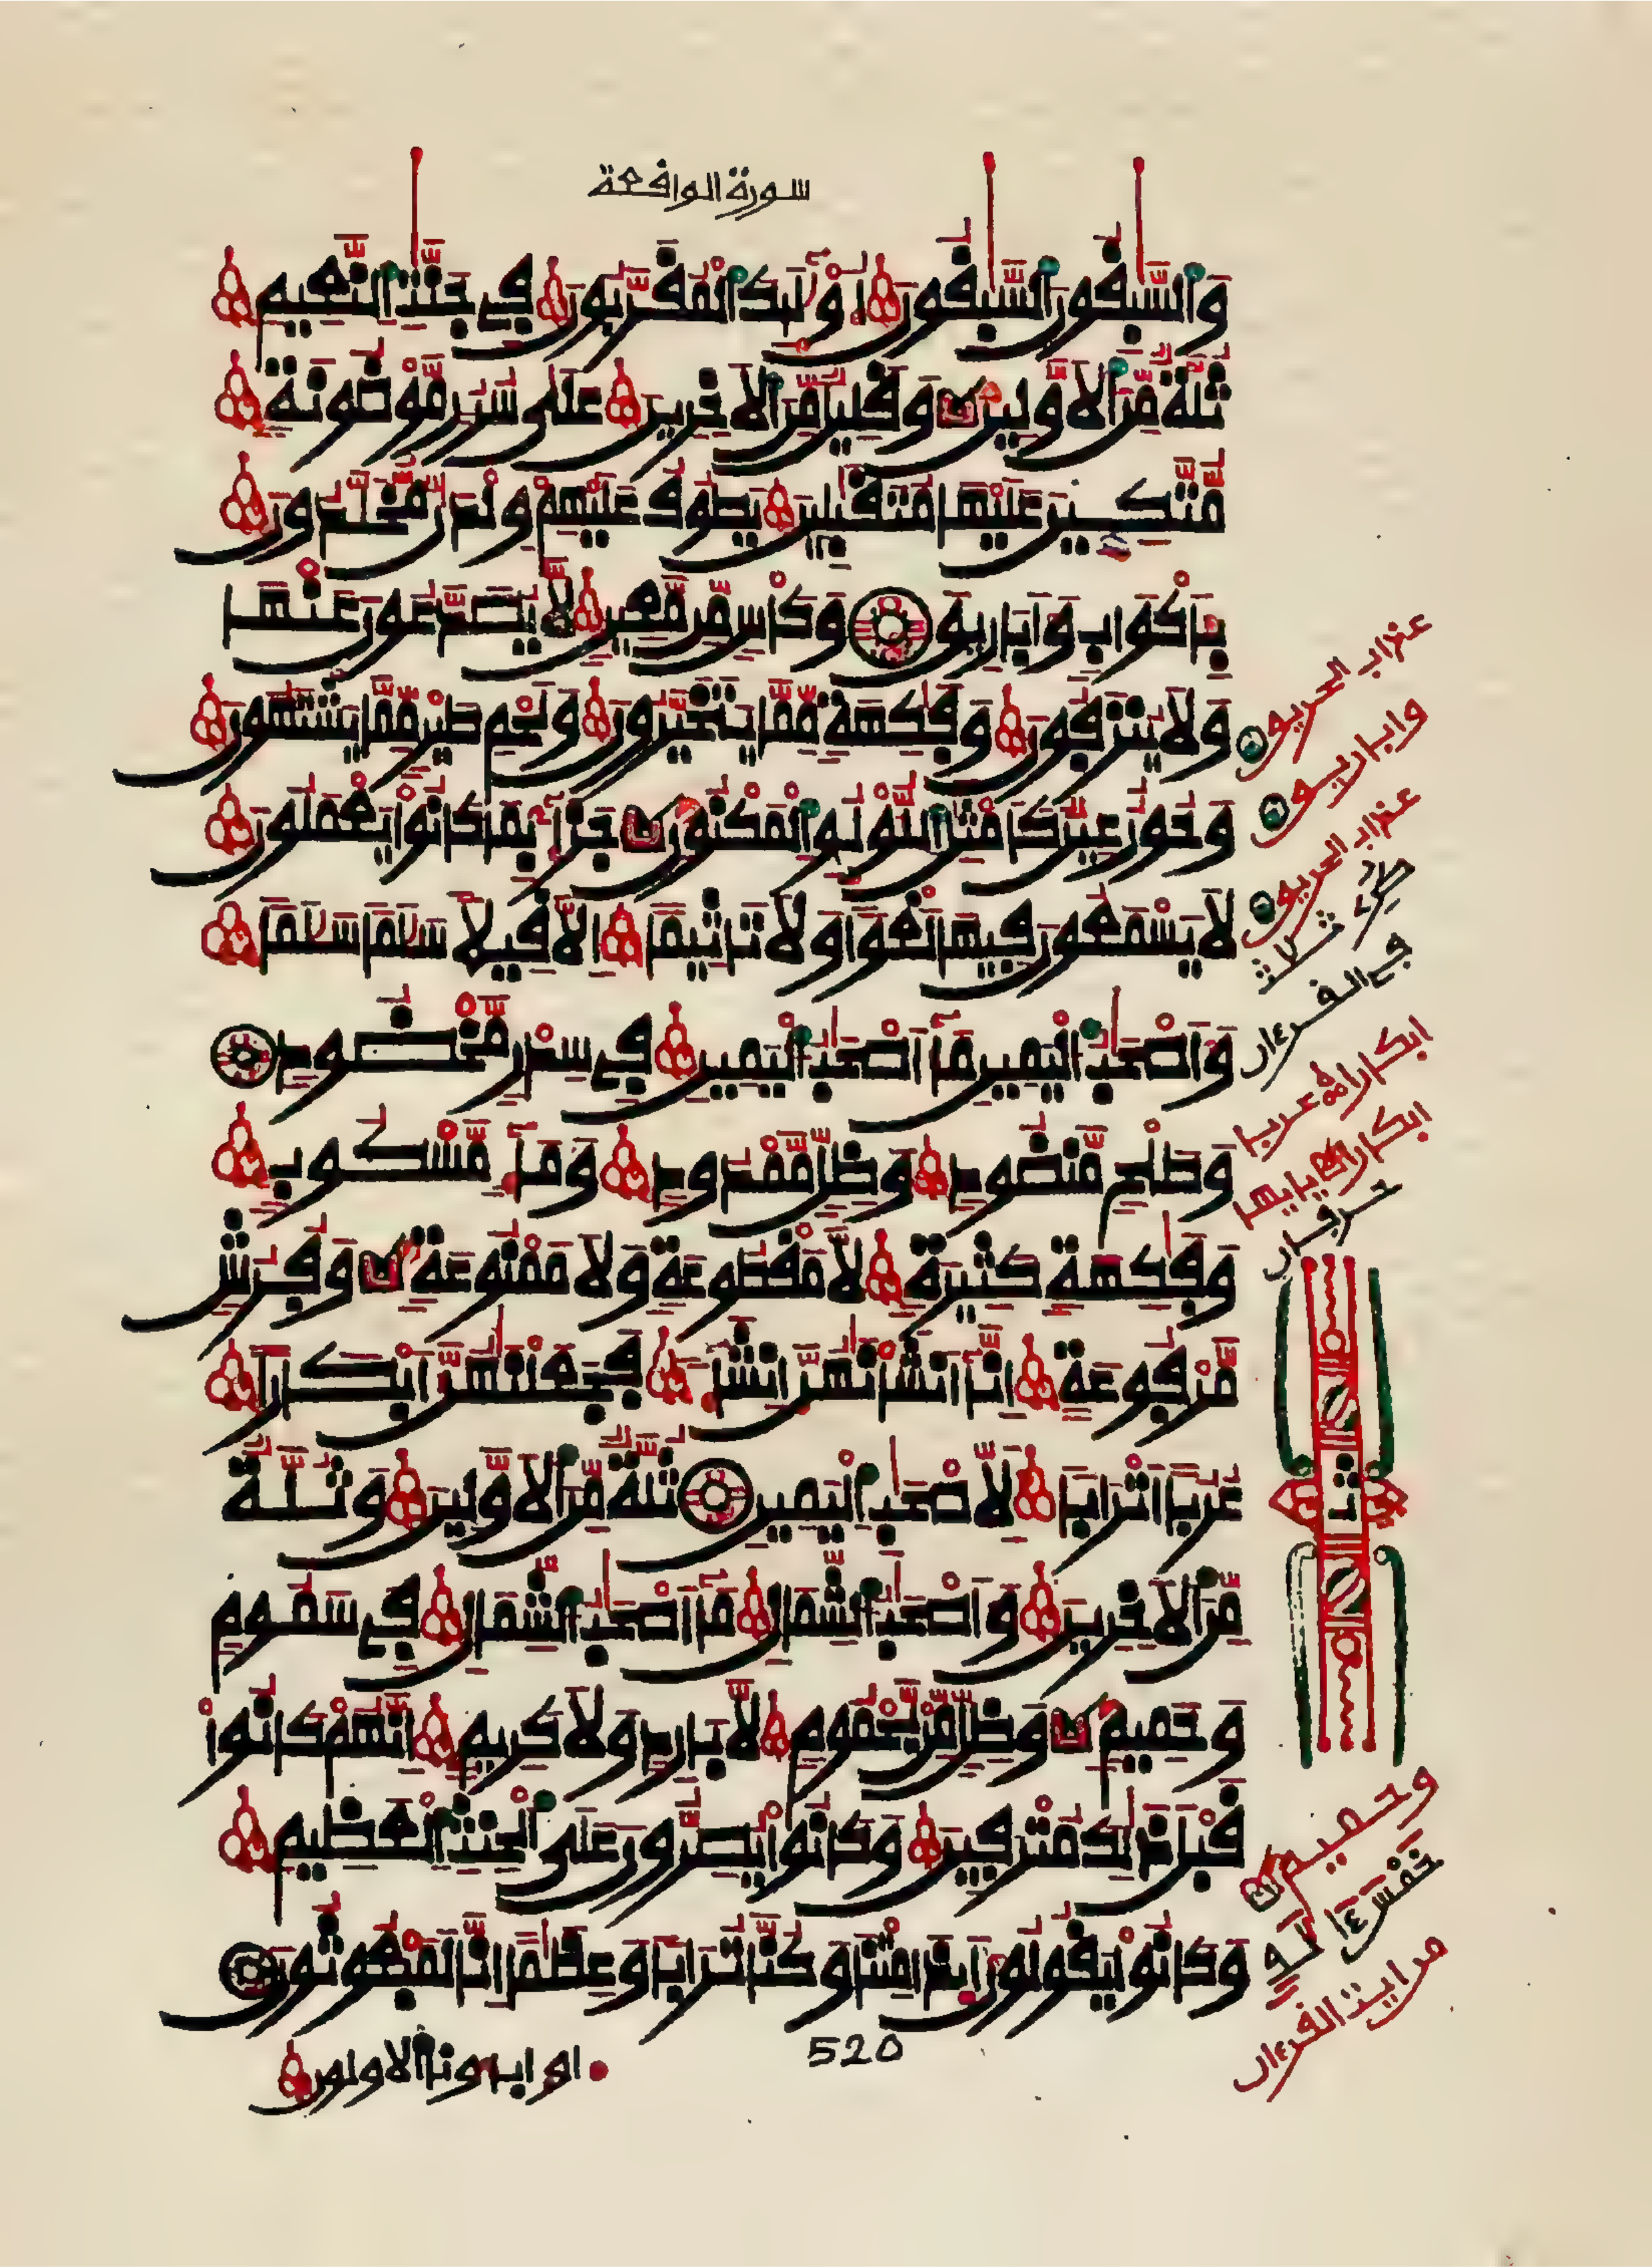 سورة الواقعة
وَالسَّٰبِقُونَ السَّٰبِقُونَ أُوْلَٰٓئِكَ الْمُقَرَّبُونَ فِي جَنَّٰتِ النَّعِيمِ
ثُلَّةٌ مِّنَ الْأَوَّلِينَ وَقَلِيلٌ مِّنَ الْأٓخِرِينَ عَلَىٰ سُرُرٍ مَّوْضُونَةٍ
مُّتَّكِـِٕينَ عَلَيْهَا مُتَقَٰبِلِينَ يَطُوفُ عَلَيْهِمْ وِلْدَٰنٌ مُّخَلَّدُونَ
بِأَكْوَابٍ وَأَبَارِيقَ وَكَأْسٍ مِّن مَّعِينٍ لَّا يُصَدَّعُونَ عَنْهَا
وَلَا يُنزَفُونَ وَفَٰكِهَةٍ مِّمَّا يَتَخَيَّرُونَ وَلَحْمِ طَيْرٍ مِّمَّا يَشْتَهُونَ
وَحُورٌ عِينٌ كَأَمْثَٰلِ اللُّؤْلُوِٕ الْمَكْنُونِ جَزَآءً بِمَا كَانُوا يَعْمَلُونَ
لَا يَسْمَعُونَ فِيهَا لَغْوًا وَلَا تَأْثِيمًا إِلَّا قِيلًا سَلَٰمًا سَلَٰمًا
وَأَصْحَٰبُ الْيَمِينِ مَآ أَصْحَٰبُ الْيَمِينِ فِي سِدْرٍ مَّخْضُودٍ
وَطَلْحٍ مَّنضُودٍ وَظِلٍّ مَّمْدُودٍ وَمَآءٍ مَّسْكُوبٍ
وَفَٰكِهَةٍ كَثِيرَةٍ لَّا مَقْطُوعَةٍ وَلَا مَمْنُوعَةٍ وَفُرُشٍ
مَّرْفُوعَةٍ إِنَّآ أَنشَأْنَٰهُنَّ إِنشَآءً فَجَعَلْنَٰهُنَّ أَبْكَارًا
عُرُبًا أَتْرَابًا لِّأَصْحَٰبِ الْيَمِينِ ثُلَّةٌ مِّنَ الْأَوَّلِينَ وَثُلَّةٌ
مِّنَ الْأٓخِرِينَ وَأَصْحَٰبُ الشِّمَالِ مَآ أَصْحَٰبُ الشِّمَالِ فِي سَمُومٍ
وَحَمِيمٍ وَظِلٍّ مِّن يَحْمُومٍ لَّا بَارِدٍ وَلَا كَرِيمٍ إِنَّهُمْ كَانُوا
قَبْلَ ذَٰلِكَ مُتْرَفِينَ وَكَانُوا يُصِرُّونَ عَلَى الْحِنثِ الْعَظِيمِ
وَكَانُوا يَقُولُونَ أَئِذَا مِتْنَا وَكُنَّا تُرَابًا وَعِظَٰمًا إِنَّا لَمَبْعُوثُونَ
520
أو ءاباؤنا الأولون
عذاب الحريق
وأباريق
عذاب الحريق
ثلاث
في القرءان
أبكارا عربا
أبكارا يأيها
حرفان
ثمن
وحميم
خمس ءالَٰف
من ءايٰت القرءان